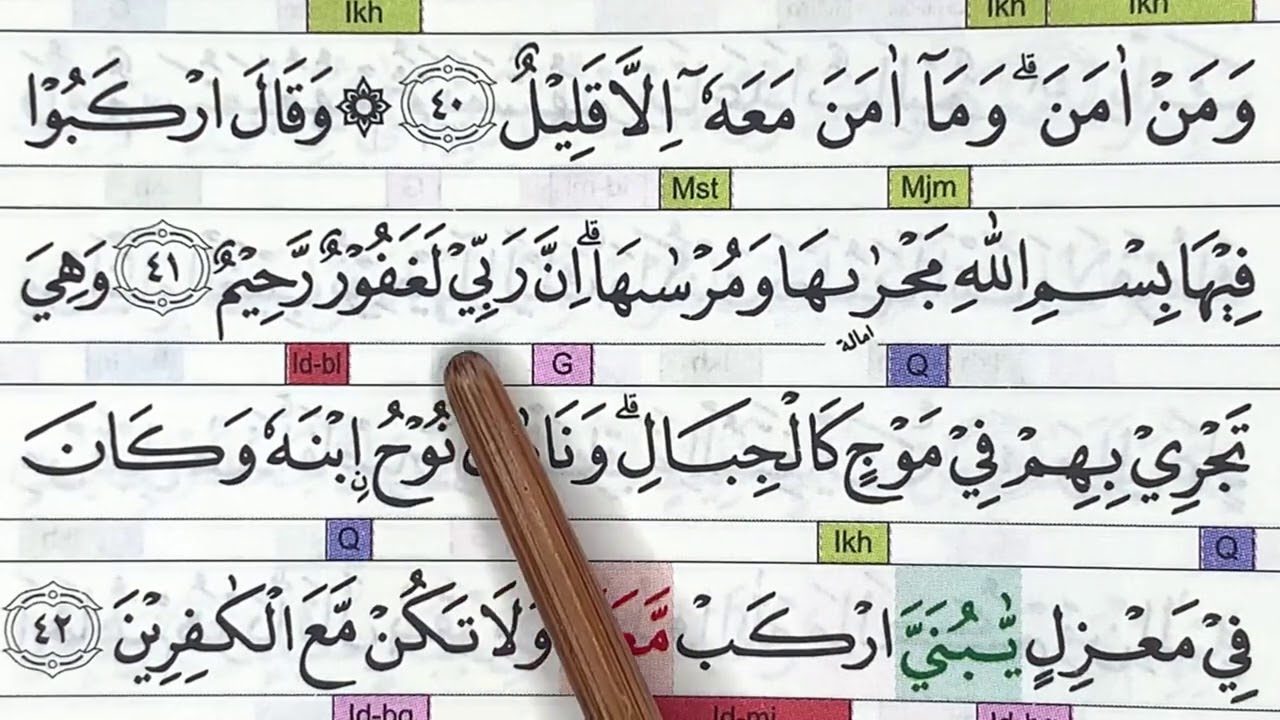 Ikh Ikh Ikh
وَمَنْ اٰمَنَ ۗوَمَآ اٰمَنَ مَعَهٗٓ اِلَّا قَلِيْلٌ ٤٠ ۞ وَقَالَ ارْكَبُوْا
Mst Mjm
فِيْهَا بِسْمِ اللّٰهِ مَجْرٰ۪ىهَا وَمُرْسٰىهَا ۗاِنَّ رَبِّيْ لَغَفُوْرٌ رَّحِيْمٌ ٤١ وَهِيَ
امالة
Id-bl G Q
تَجْرِيْ بِهِمْ فِيْ مَوْجٍ كَالْجِبَالِ ۗ نُوْحُ ِۨابْنَهٗ وَكَانَ
Q Ikh Q
فِيْ مَعْزِلٍ يّٰبُنَيَّ ارْكَبْ وَلَا تَكُنْ مَّعَ الْكٰفِرِيْنَ ٤٢
Id-bg Id-mi